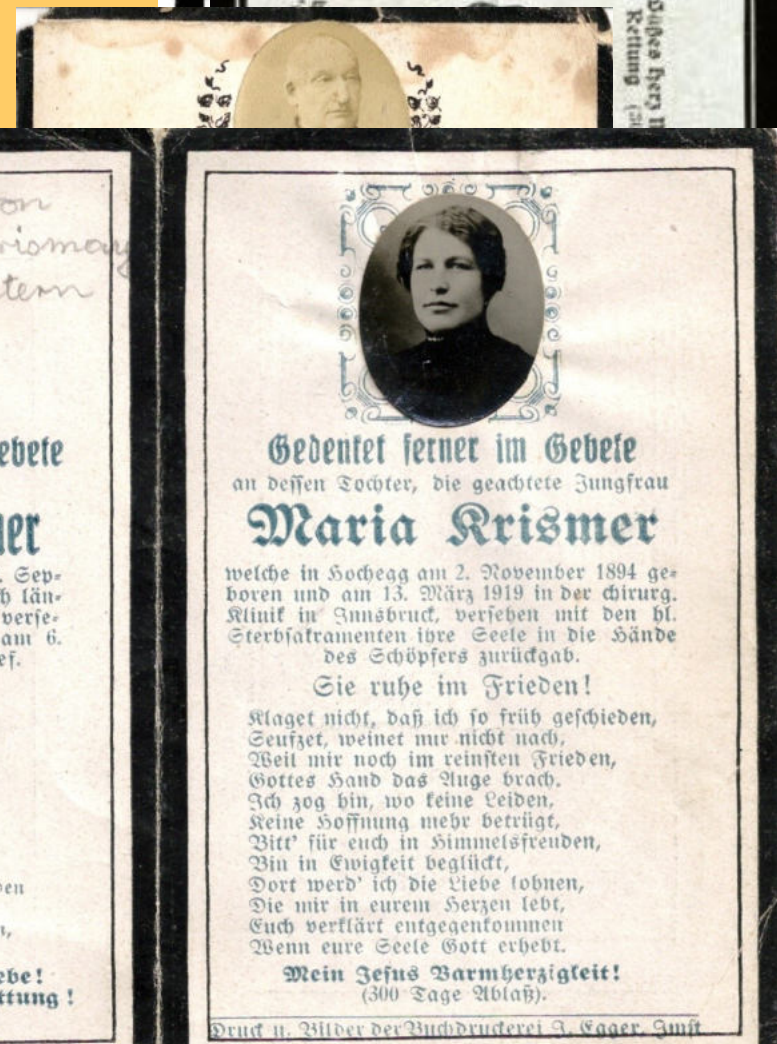 Süßes Herz
Rettung
on
tern
ebete
er
. Sep=
h län=
verse=
am 6.
ef.
en
n,
ebe!
ttung!
Gedenket ferner im Gebete
an dessen Tochter, die geachtete Jungfrau
Maria Krismer
welche in Hochegg am 2. November 1894 ge=
boren und am 13. März 1919 in der chirurg.
Klinik in Innsbruck, versehen mit den hl.
Sterbsakramenten ihre Seele in die Hände
des Schöpfers zurückgab.
Sie ruhe im Frieden!
Klaget nicht, daß ich so früh geschieden,
Seufzet, weinet mir nicht nach,
Weil mir noch im reinsten Frieden,
Gottes Hand das Auge brach.
Ich zog hin, wo keine Leiden,
Keine Hoffnung mehr betrügt,
Bitt' für euch in Himmelsfreuden,
Bin in Ewigkeit beglückt,
Dort werd' ich die Liebe lohnen,
Die mir in eurem Herzen lebt,
Euch verklärt entgegenkommen
Wenn eure Seele Gott erhebt.
Mein Jesus Barmherzigkeit!
(300 Tage Ablaß).
Druck u. Bilder der Buchdruckerei J. Egger, Imst